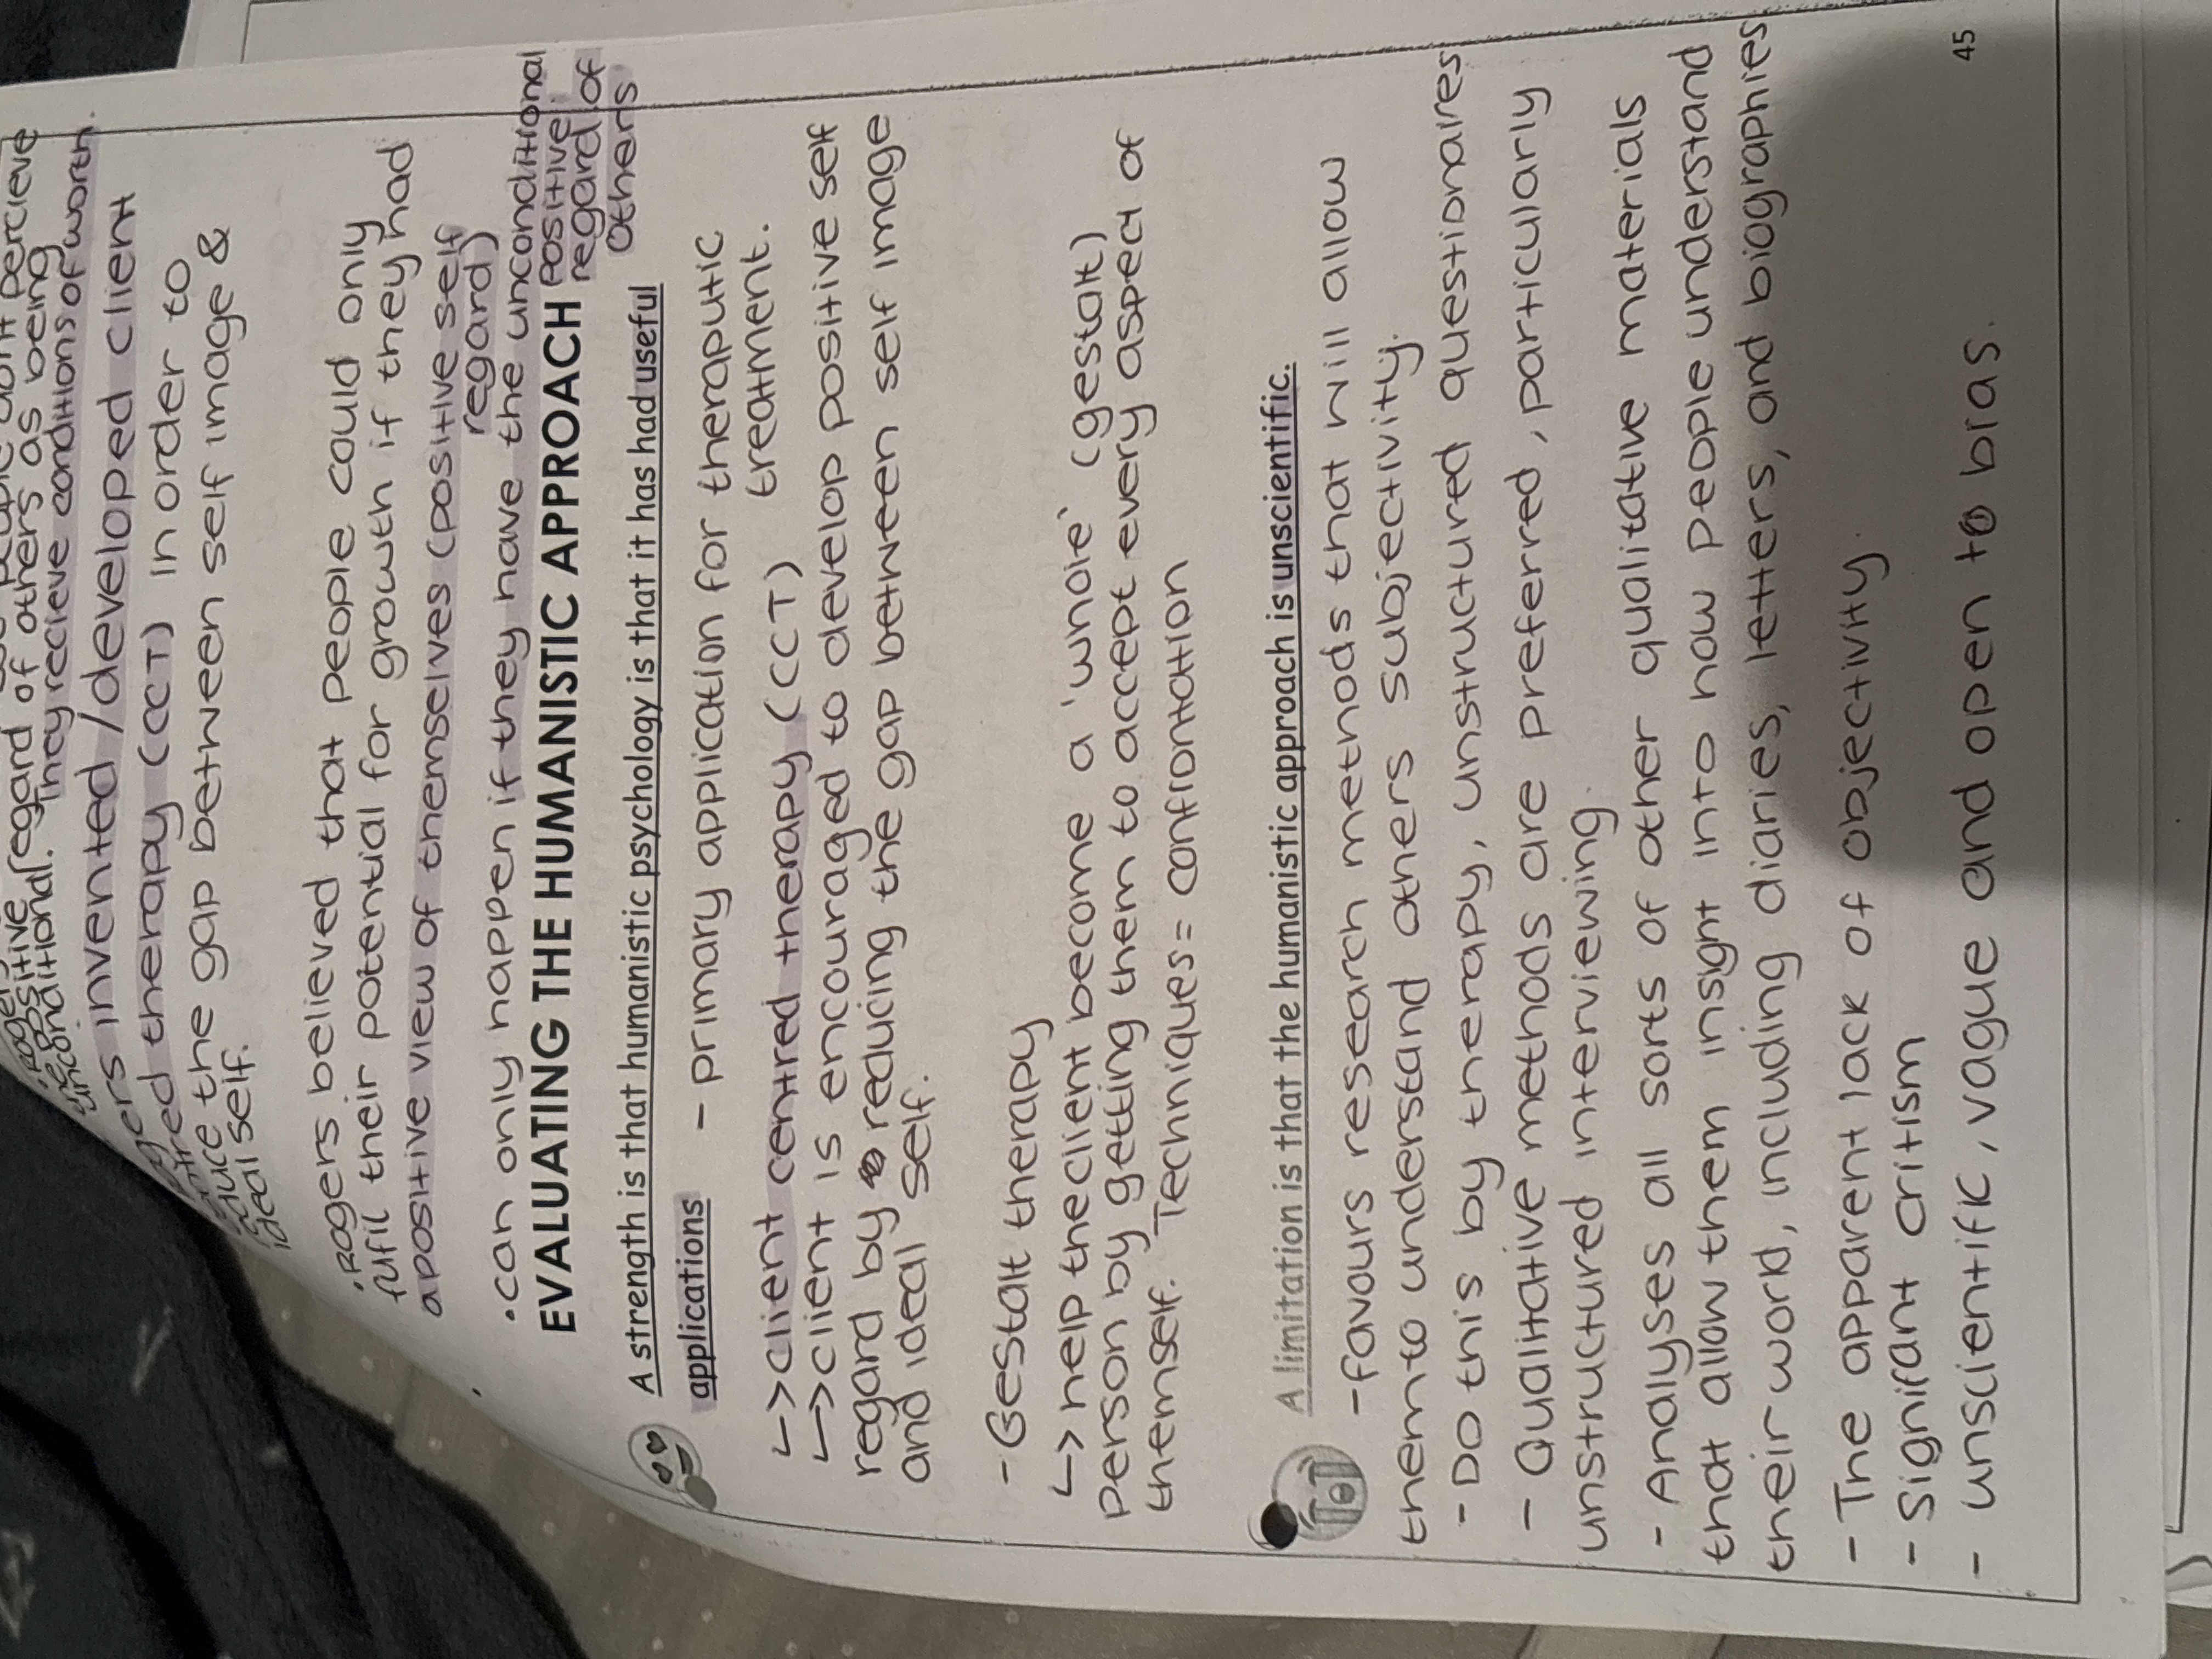 regard of others as being
unconditional. They recieve conditions of worth.
invented / developed client
therapy (CCT) in order to
the gap between self image &
ideal self.
• Rogers believed that people could only
fulfil their potential for growth if they had
a positive view of themselves (positive self
regard)
• can only happen if they have the unconditional
positive
regard of
others
EVALUATING THE HUMANISTIC APPROACH
A strength is that humanistic psychology is that it has had useful
applications - primary application for theraputic
treatment.
↳ client centred therapy (CCT)
↳ client is encouraged to develop positive self
regard by reducing the gap between self image
and ideal self.
- Gestalt therapy
↳ help the client become a 'whole' (gestalt)
person by getting them to accept every aspect of
themself. Techniques = confrontation
A limitation is that the humanistic approach is unscientific.
- favours research methods that will allow
them to understand others subjectivity.
- Do this by therapy, unstructured questionaires
- Qualitative methods are preferred, particularly
unstructured interviewing.
- Analyses all sorts of other qualitative materials
that allow them insight into how people understand
their world, including diaries, letters, and biographies
- The apparent lack of objectivity.
- Significant critism
- unscientific, vague and open to bias.
45